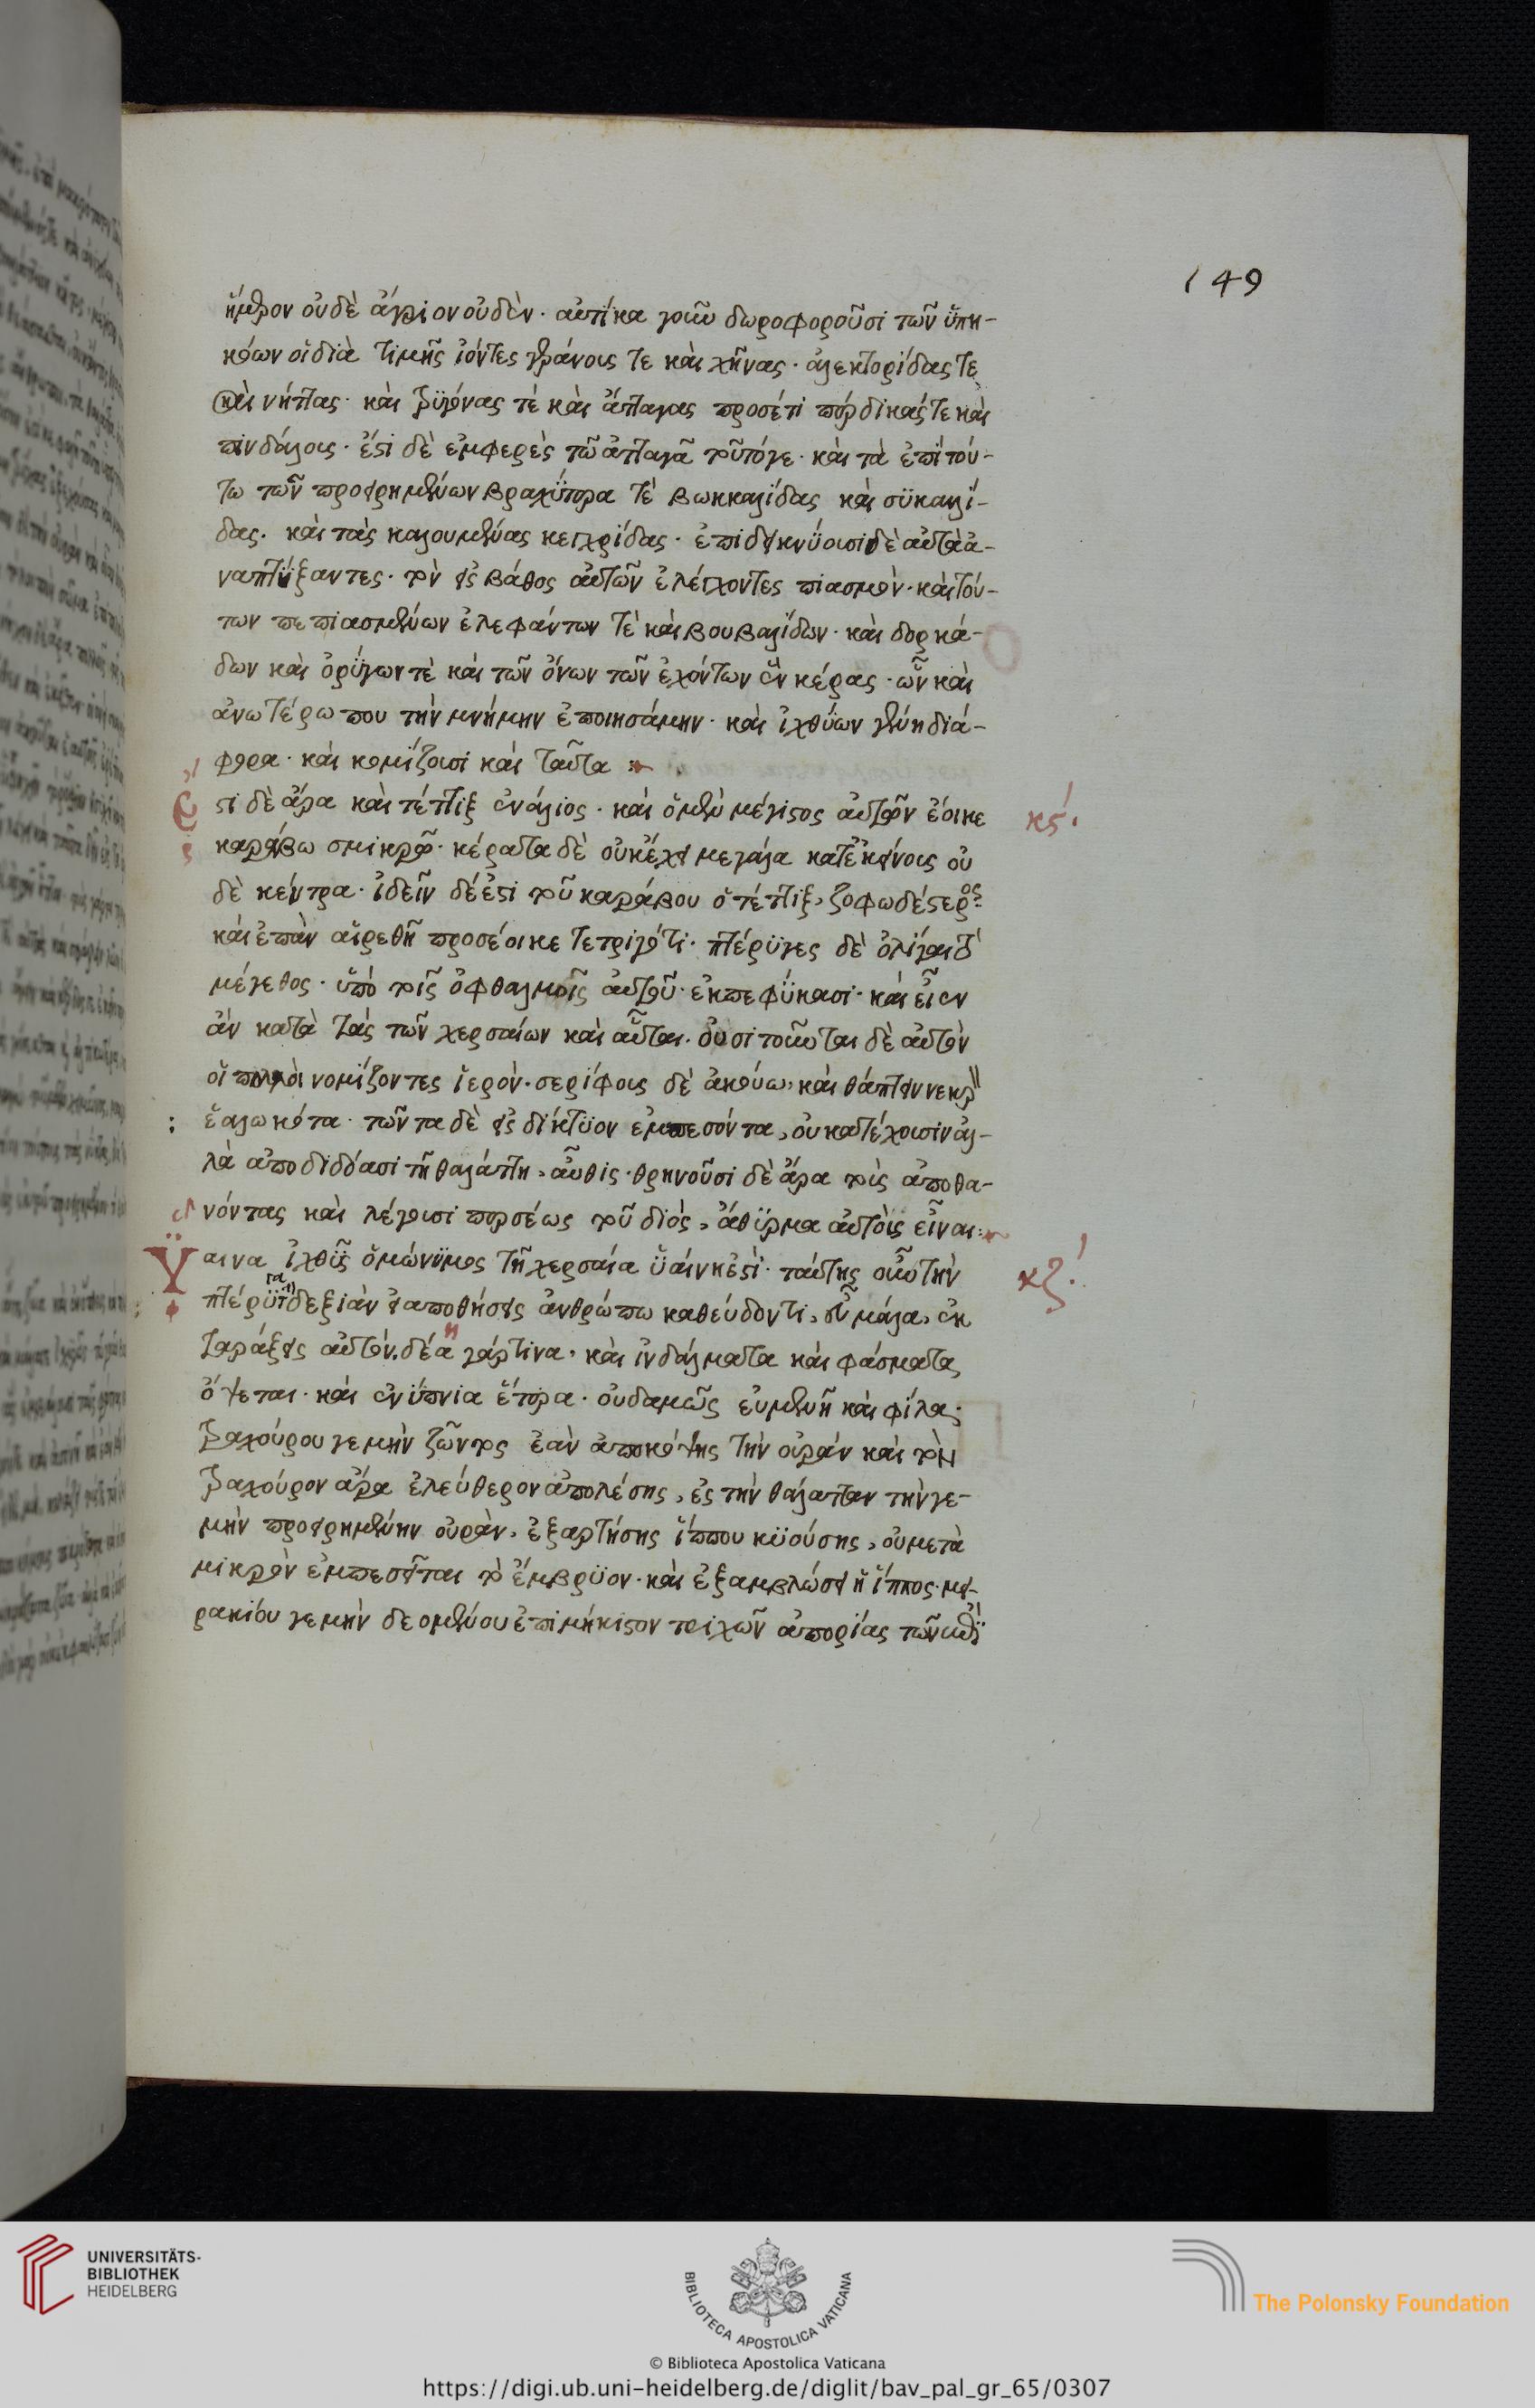 149
ἥμερον οὐδὲ ἄγριον οὐδέν· αὐτίκα γοῦν δωροφοροῦσι τῶν ὑπη-
κόων οἱ διὰ τιμῆς ἰόντες γεράνους τε καὶ χῆνας· ἀλεκτορίδας τε
καὶ νήττας· καὶ τρυγόνας τὲ καὶ ἄτταγας προσέτι πέρδικάς τε καὶ
πινδάλους· ἔστι δὲ ἐμφερὲς τῶ ἀτταγᾶ τοῦτόγε· καὶ τὰ ἐπὶ τού-
τω τῶν προειρημένων βραχύτερα τὲ βωκκαλίδας καὶ συκαλί-
δας· καὶ τὰς καλουμένας κεγχρίδας· ἐπιδεικνύουσι δὲ αὐτὰ ἀ-
ναπτύξαντες· τὸν εἰς βάθος αὐτῶν ἐλέγχοντες πιασμόν· καὶ τού-
των πεπιασμένων ἐλεφάντων τὲ καὶ βουβαλίδων· καὶ δορκά-
δων καὶ ὀρύγων τὲ καὶ τῶν ὄνων τῶν ἐχόντων ἓν κέρας· ὧν καὶ
ἀνωτέρω που τὴν μνήμην ἐποιησάμην· καὶ ἰχθύων γένη διά-
φορα· καὶ κομίζουσι καὶ ταῦτα
Ἔστι δὲ ἄρα καὶ τέττιξ ἐνάλιος· καὶ ὁ μὲν μέγιστος αὐτῶν ἔοικε
κϛ΄
καράβω σμικρῶ· κέρατα δὲ οὐκ ἔχει μεγάλα κατ' ἐκείνους οὐ
δὲ κέντρα· ἰδεῖν δέ ἐστι τοῦ καράβου ὁ τέττιξ, ζοφωδέστερος
καὶ ἐπὰν αἱρεθῆ προσέοικε τετριγότι· πτέρυγες δὲ ὀλίγαι τὸ
μέγεθος· ὑπὸ τοῖς ὀφθαλμοῖς αὐτοῦ· ἐκπεφύκασι· καὶ εἶεν
ἂν κατὰ τὰς τῶν χερσαίων καὶ αὗται· οὐ σιτοῦνται δὲ αὐτὸν
οἱ πολλοὶ νομίζοντες ἱερόν· σεριφίους δὲ ἀκούω, καὶ θάπτειν νεκρὸν
ἑαλωκότα· τῶντα δὲ εἰς δίκτυον ἐμπεσόντα, οὐ κατέχουσιν ἀλ-
λὰ ἀποδιδόασι τῆ θαλάττη, αὖθις· θρηνοῦσι δὲ ἄρα τοῖς ἀποθα-
νόντας καὶ λέγουσι περσέως τοῦ διός, ἄθυρμα αὐτοῖς εἶναι
Ὕαινα ἰχθῦς ὁμώνυμος τῆ χερσαία ὑαίνη ἐστί· ταύτης οὖν τὴν
κζ΄
πτέρυγα τὴν δεξιὰν εἰ ἀποθήσεις ἀνθρώπω καθεύδοντι, εὖ μάλα, ἐκ
ταράξεις αὐτόν. δέη γάρ τινα, καὶ ἰνδάλματα καὶ φάσματα
ὄψεται· καὶ ἐνύπνια ἕτερα· οὐδαμῶς εὐμενῆ καὶ φίλα·
τραχούρου γεμὴν ζῶντος ἐὰν ἀποκόψης τὴν οὐρὰν καὶ τὸν
τραχούρον ἄρα ἐλεύθερον ἀπολέσης, ἐς τὴν θάλατταν τήν γε-
μὴν προειρημένην οὐρὰν, ἐξαρτήσης ἵππου κυούσης, οὐ μετὰ
μικρὸν ἐμπεσεῖται τὸ ἔμβρυον· καὶ ἐξαμβλώσει ἡ ἵππος· μει-
ρακίου γεμὴν δεομένου ἐπιμήκιστον τριχῶν ἀπορίας τῶν
UNIVERSITÄTS-
BIBLIOTHEK
HEIDELBERG
BIBLIOTECA APOSTOLICA VATICANA
© Biblioteca Apostolica Vaticana
The Polonsky Foundation
https://digi.ub.uni-heidelberg.de/diglit/bav_pal_gr_65/0307